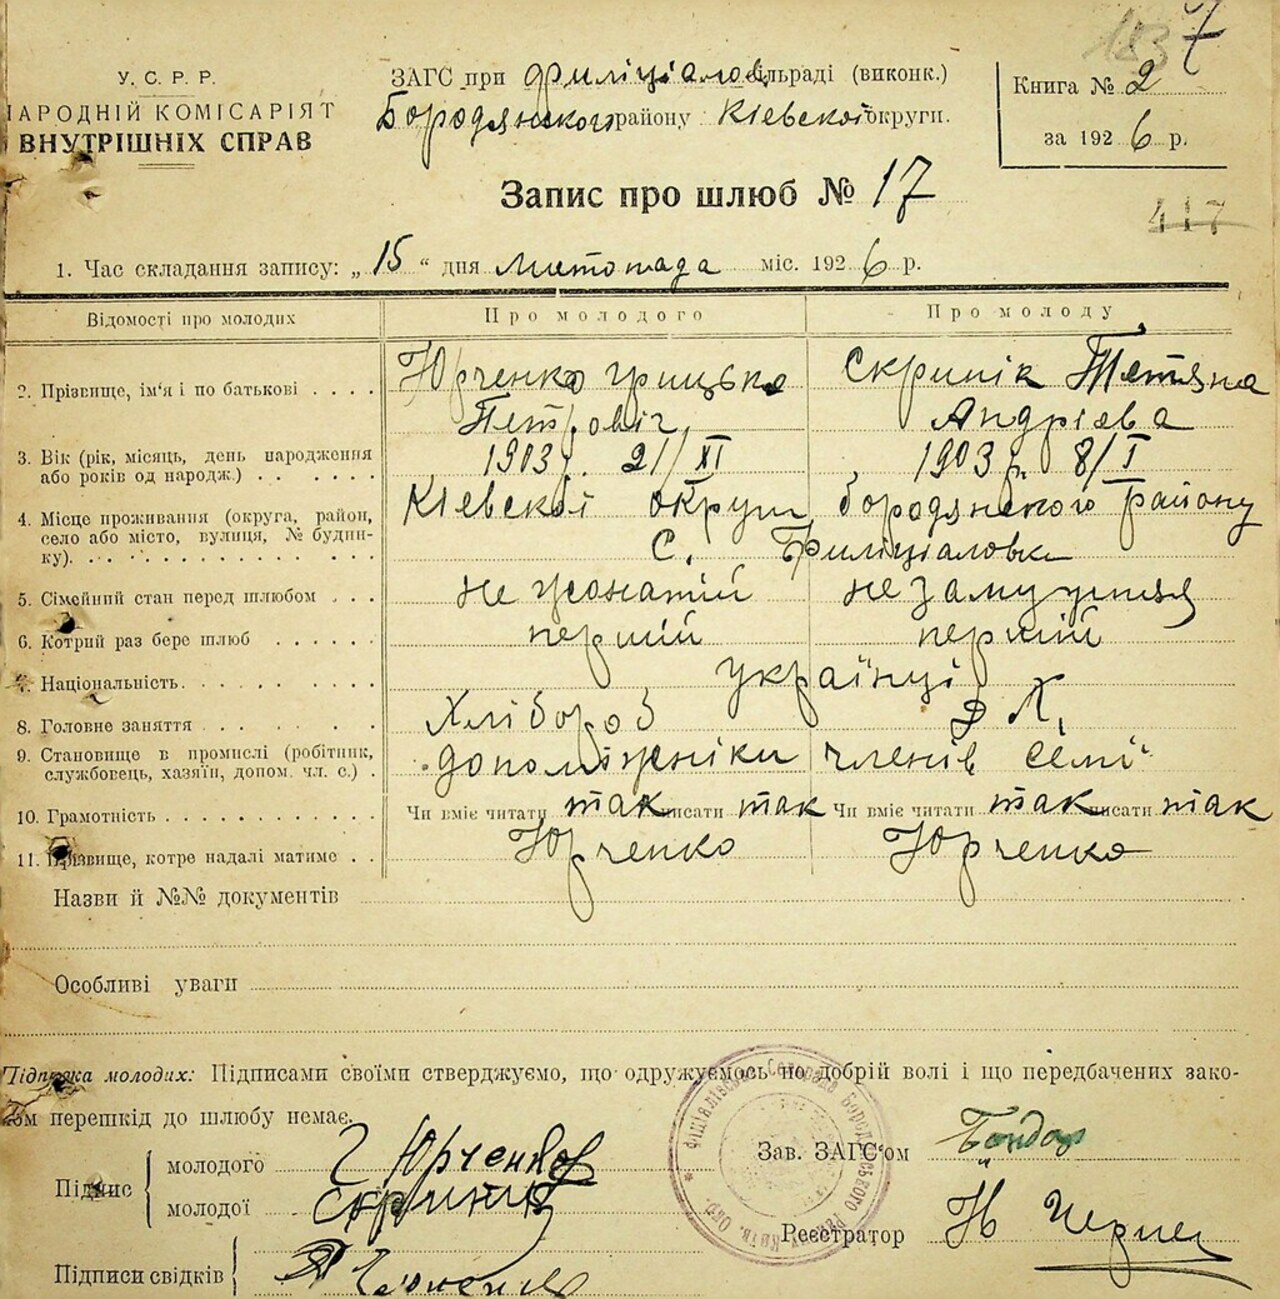 7
У. С. Р. Р.
НАРОДНІЙ КОМІСАРІЯТ
ВНУТРІШНІХ СПРАВ
ЗАГС при Филіціалов. сільраді (виконк.)
Бородянского району Кіевскоі округи.
Книга № 2
за 1926 р.
Запис про шлюб № 17
417
1. Час складання запису: „15“ дня листопада міс. 1926 р.
Відомості про молодих Про молодого Про молоду
2. Прізвище, ім'я і по батькові Юрченко Грицько Скрипік Тетяна
Петровіч Андріева
3. Вік (рік, місяць, день народження або років од народж.) 1903 р. 21/XI 1903 р. 8/I
4. Місце проживання (округа, район, село або місто, вулиця, № будинку). Кіевскоі округи бородянского району
С. Филіціаловка
5. Сімейний стан перед шлюбом не жонатий незамужняя
6. Котрий раз бере шлюб перший перший
7. Національність українці
8. Головне заняття Хлібороб Д Х.
9. Становище в промислі (робітник, службовець, хазяїн, допом. чл. с.) допоміжніки членів семї
10. Грамотність Чи вміє читати так писати так Чи вміє читати так писати так
11. Прізвище, котре надалі матиме Юрченко Юрченко
Назви й №№ документів
Особливі уваги
Підписка молодих: Підписами своїми стверджуємо, що одружуємось по добрій волі і що передбачених зако-
ном перешкід до шлюбу немає.
Підпис молодого Г Юрченко
молодої Скрипік
Зав. ЗАГС'ом Бондар
Реєстратор
Підписи свідків